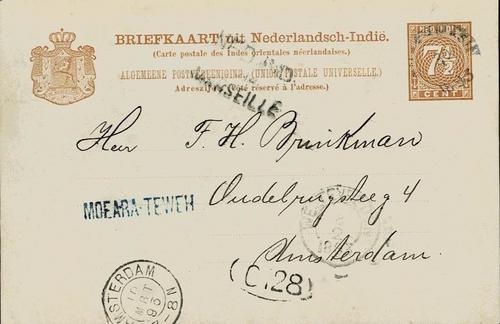 BRIEFKAART uit Nederlandsch-Indië.
(Carte postale des Indes orientales néerlandaises.)
ALGEMEENE POSTVEREENIGING (UNION POSTALE UNIVERSELLE).
Adreszijde. (Côté réservé à l'adresse.)
MARSEILLE
7½
CENT
Heer F. H. Brinkman
Oudebrugsteeg 4
Amsterdam.
MOEARA-TEWEH
(C.28)
AMSTERDAM
10
MRT
93
N8